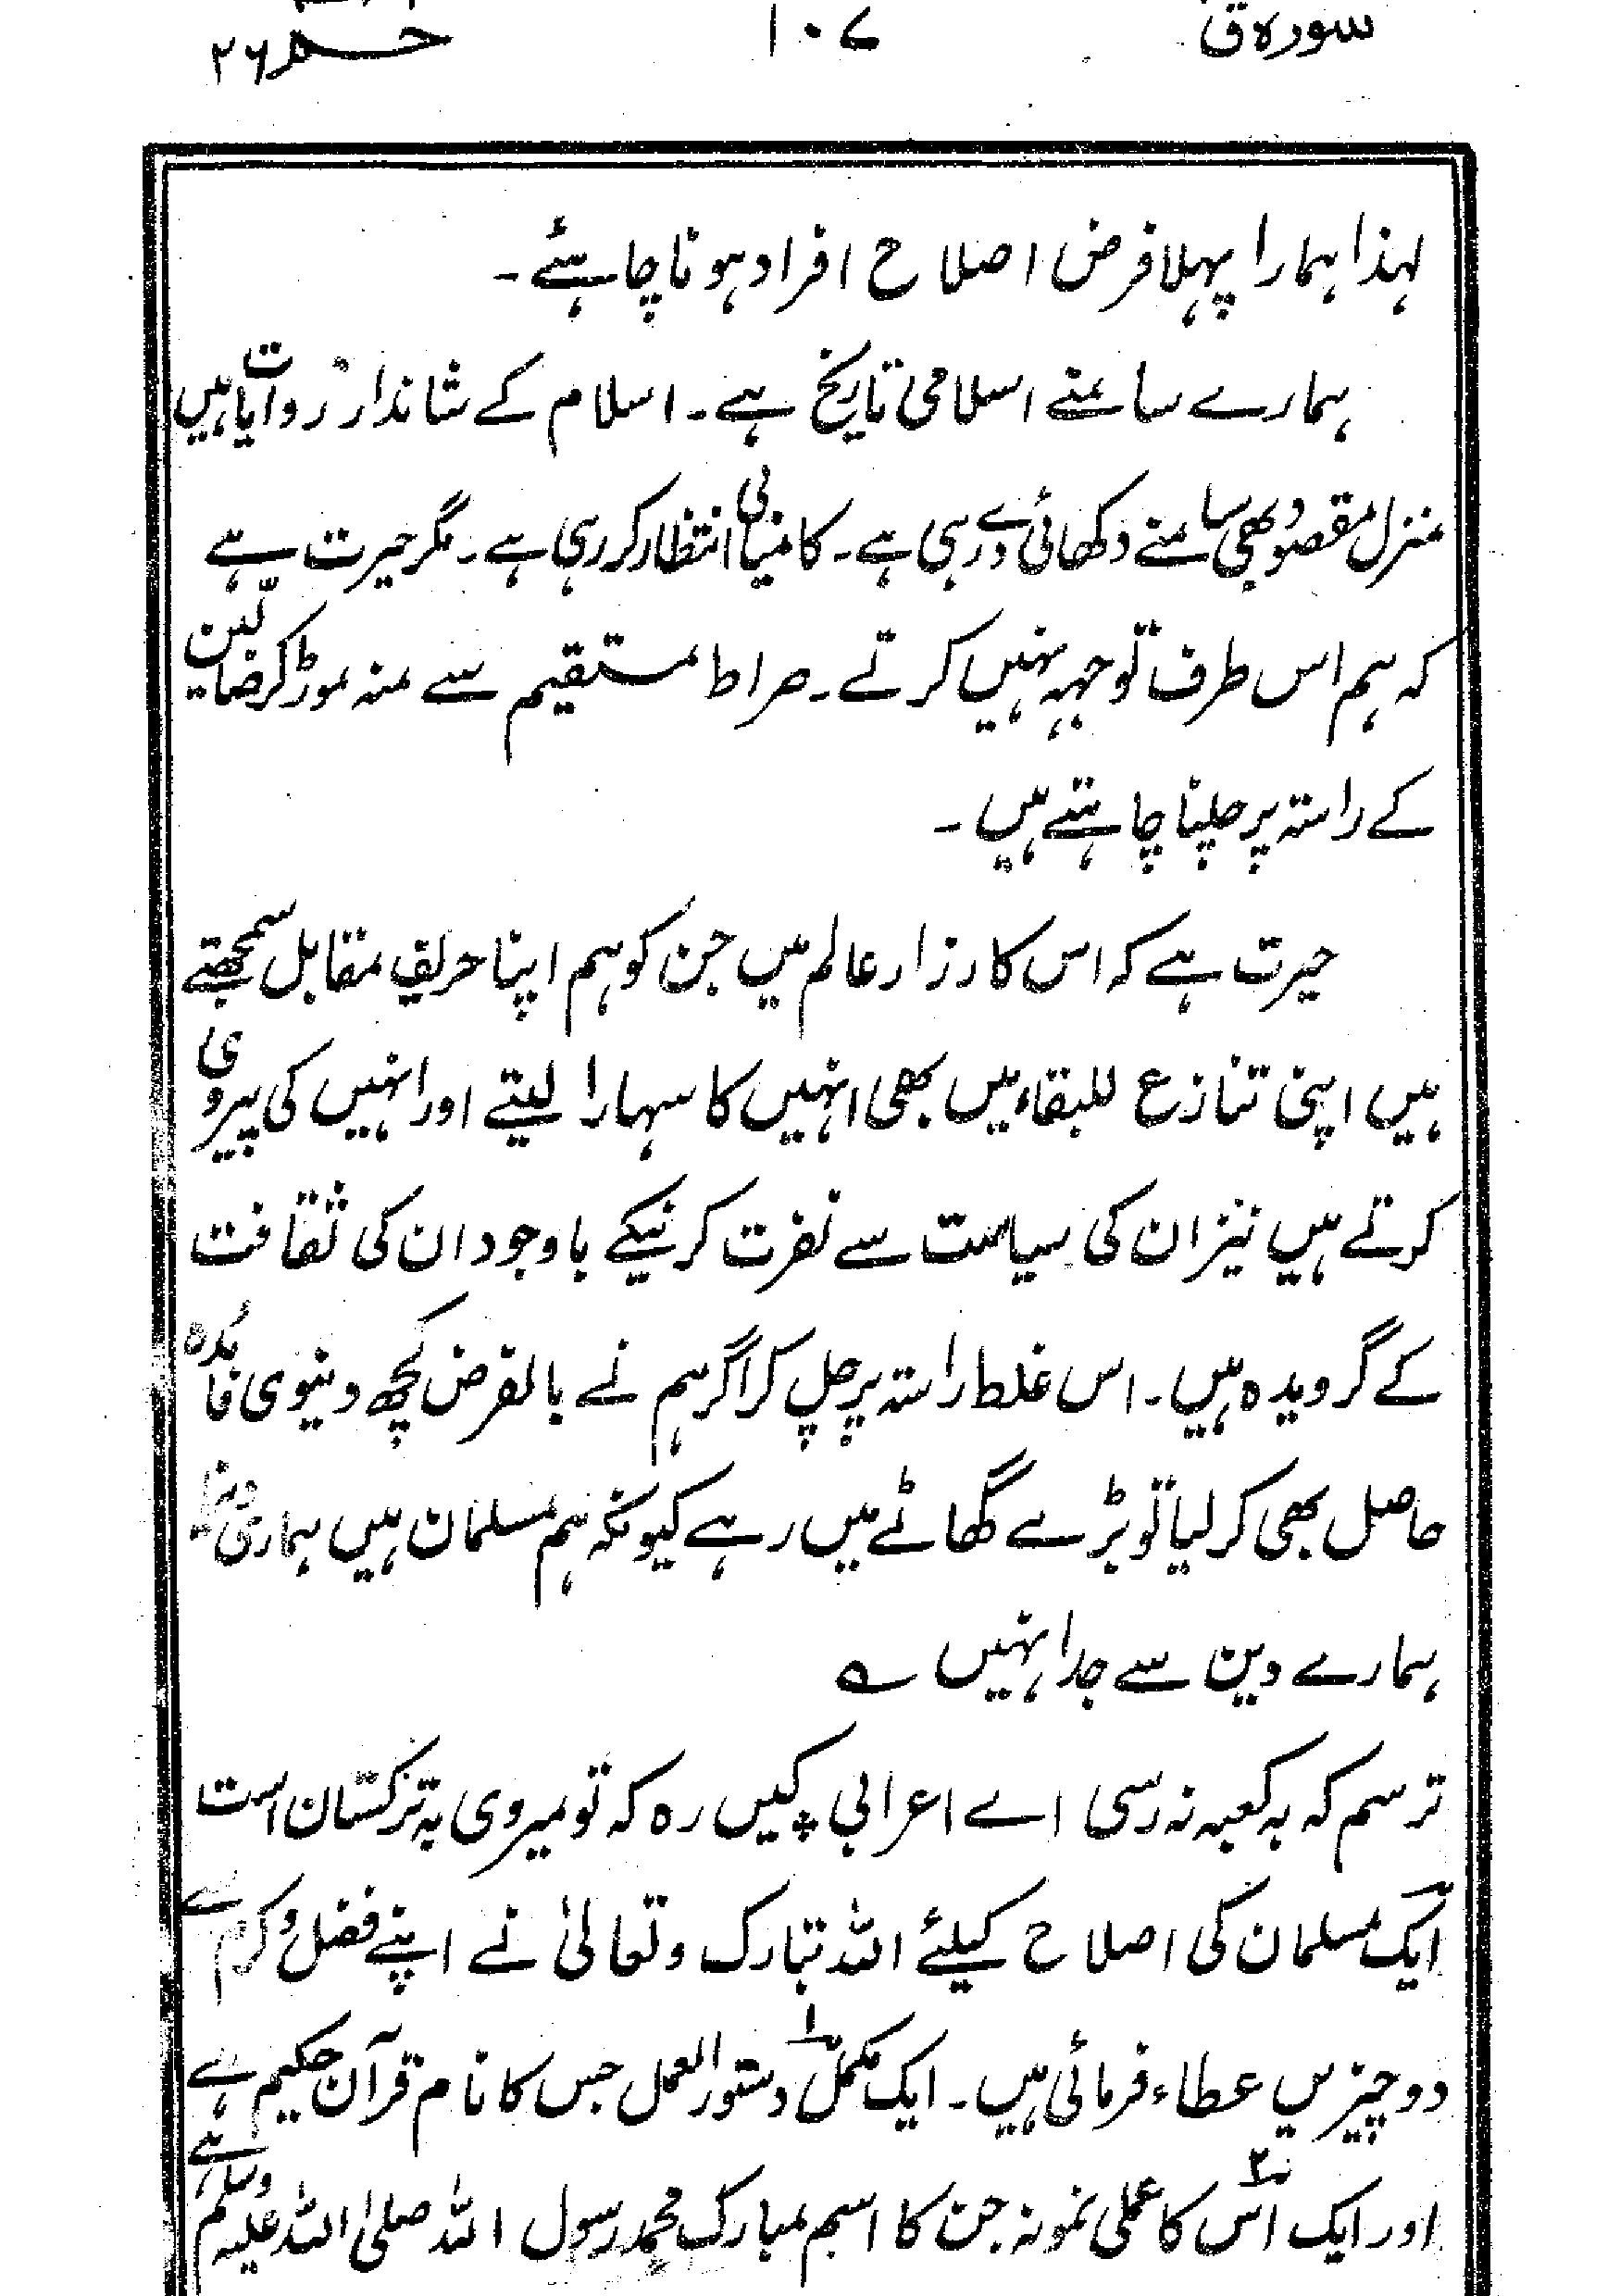 سورہ ق ۱۰۷ حم ۲۶
لہذا ہمارا پہلا فرض اصلاح افراد ہونا چاہئے۔
ہمارے سامنے اسلامی تاریخ ہے۔ اسلام کے شاندار روایات ہیں
منزل مقصود بھی سامنے دکھائی دے رہی ہے۔ کامیابی انتظار کر رہی ہے۔ مگر حیرت ہے
کہ ہم اس طرف توجہہ نہیں کرتے۔ صراط مستقیم سے منہ موڑ کر ضالین
کے راستہ پر چلنا چاہتے ہیں۔
حیرت ہے کہ اس کارزار عالم میں جن کو ہم اپنا حریف مقابل سمجھتے
ہیں اپنی تنازع للبقاء میں بھی انہیں کا سہارا لیتے اور انہیں کی پیروی
کرتے ہیں نیز ان کی سیاست سے نفرت کرنیکے باوجود ان کی ثقافت
کے گرویدہ ہیں۔ اس غلط راستہ پر چل کر اگر ہم نے بالفرض کچھ دنیوی فائدہ
حاصل بھی کر لیا تو بڑے گھاٹے میں رہے کیونکہ ہم مسلمان ہیں ہماری دنیا
ہمارے دین سے جدا نہیں ؎
ترسم کہ بہ کعبہ نہ رسی اے اعرابی ؞ کیں رہ کہ تو میروی بہ ترکستان است
ایک مسلمان کی اصلاح کیلئے اللہ تبارک و تعالیٰ نے اپنے فضل و کرم سے
دو چیزیں عطاء فرمائی ہیں۔ ایک ۱ مکمل دستور العمل جس کا نام قرآن حکیم ہے
اور ایک ۲ اس کا عملی نمونہ جن کا اسم مبارک محمد رسول اللہ صلی اللہ علیہ وسلم ہے